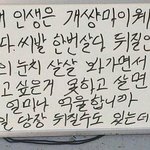 내 인생은 개상마이웨
다. 씨발 한번살다 뒤질인
의 눈치 살살 봐가면서
고싶은거 못하고 살면
얼마나 억울합니까
일 당장 뒤질수도 있는데